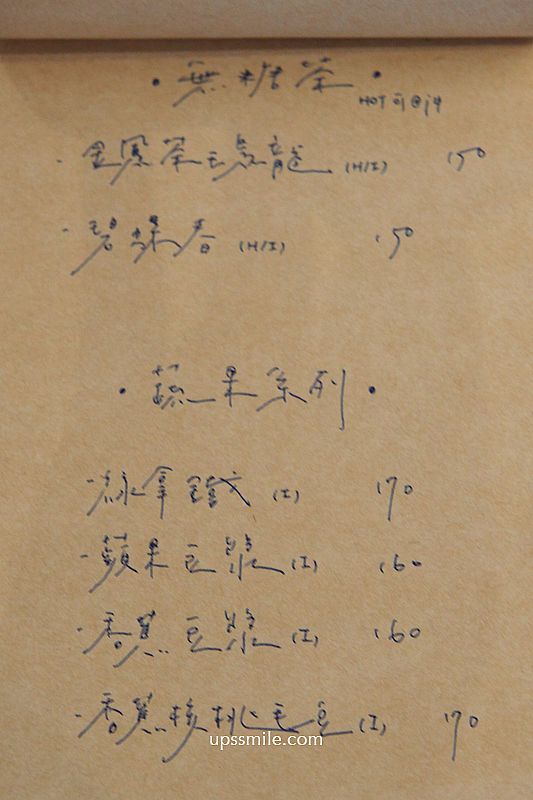 • 無糖茶 •
HOT 可回沖
- 金鳳茶王烏龍 (H/I) 150
- 碧螺春 (H/I) 150
• 蔬果系列 •
- 綠拿鐵 (I) 170
- 蘋果豆漿 (I) 160
- 香蕉豆漿 (I) 160
- 香蕉核桃毛豆 (I) 170
upssmile.com